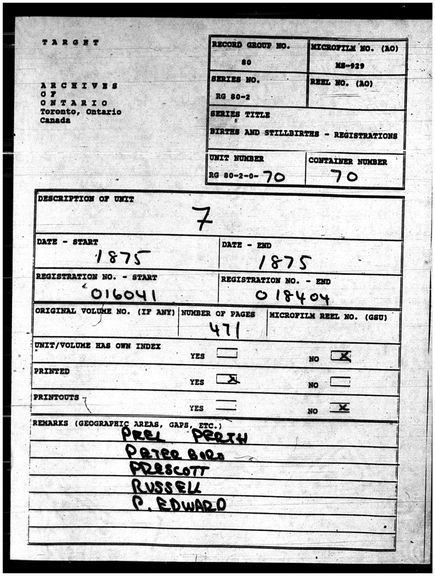 TARGET
ARCHIVES
OF
ONTARIO
Toronto, Ontario
Canada
RECORD GROUP NO.
80
MICROFILM NO. (AO)
MS-929
SERIES NO.
RG 80-2
REEL NO. (AO)
SERIES TITLE
BIRTHS AND STILLBIRTHS - REGISTRATIONS
UNIT NUMBER
RG 80-2-0- 70
CONTAINER NUMBER
70
DESCRIPTION OF UNIT
7
DATE - START
1875
DATE - END
1875
REGISTRATION NO. - START
016041
REGISTRATION NO. - END
018404
ORIGINAL VOLUME NO. (IF ANY)
NUMBER OF PAGES
471
MICROFILM REEL NO. (GSU)
UNIT/VOLUME HAS OWN INDEX
YES
NO X
PRINTED
YES X
NO
PRINTOUTS
YES
NO X
REMARKS (GEOGRAPHIC AREAS, GAPS, ETC.)
PEEL PERTH
PETERBORO
PRESCOTT
RUSSELL
P. EDWARD